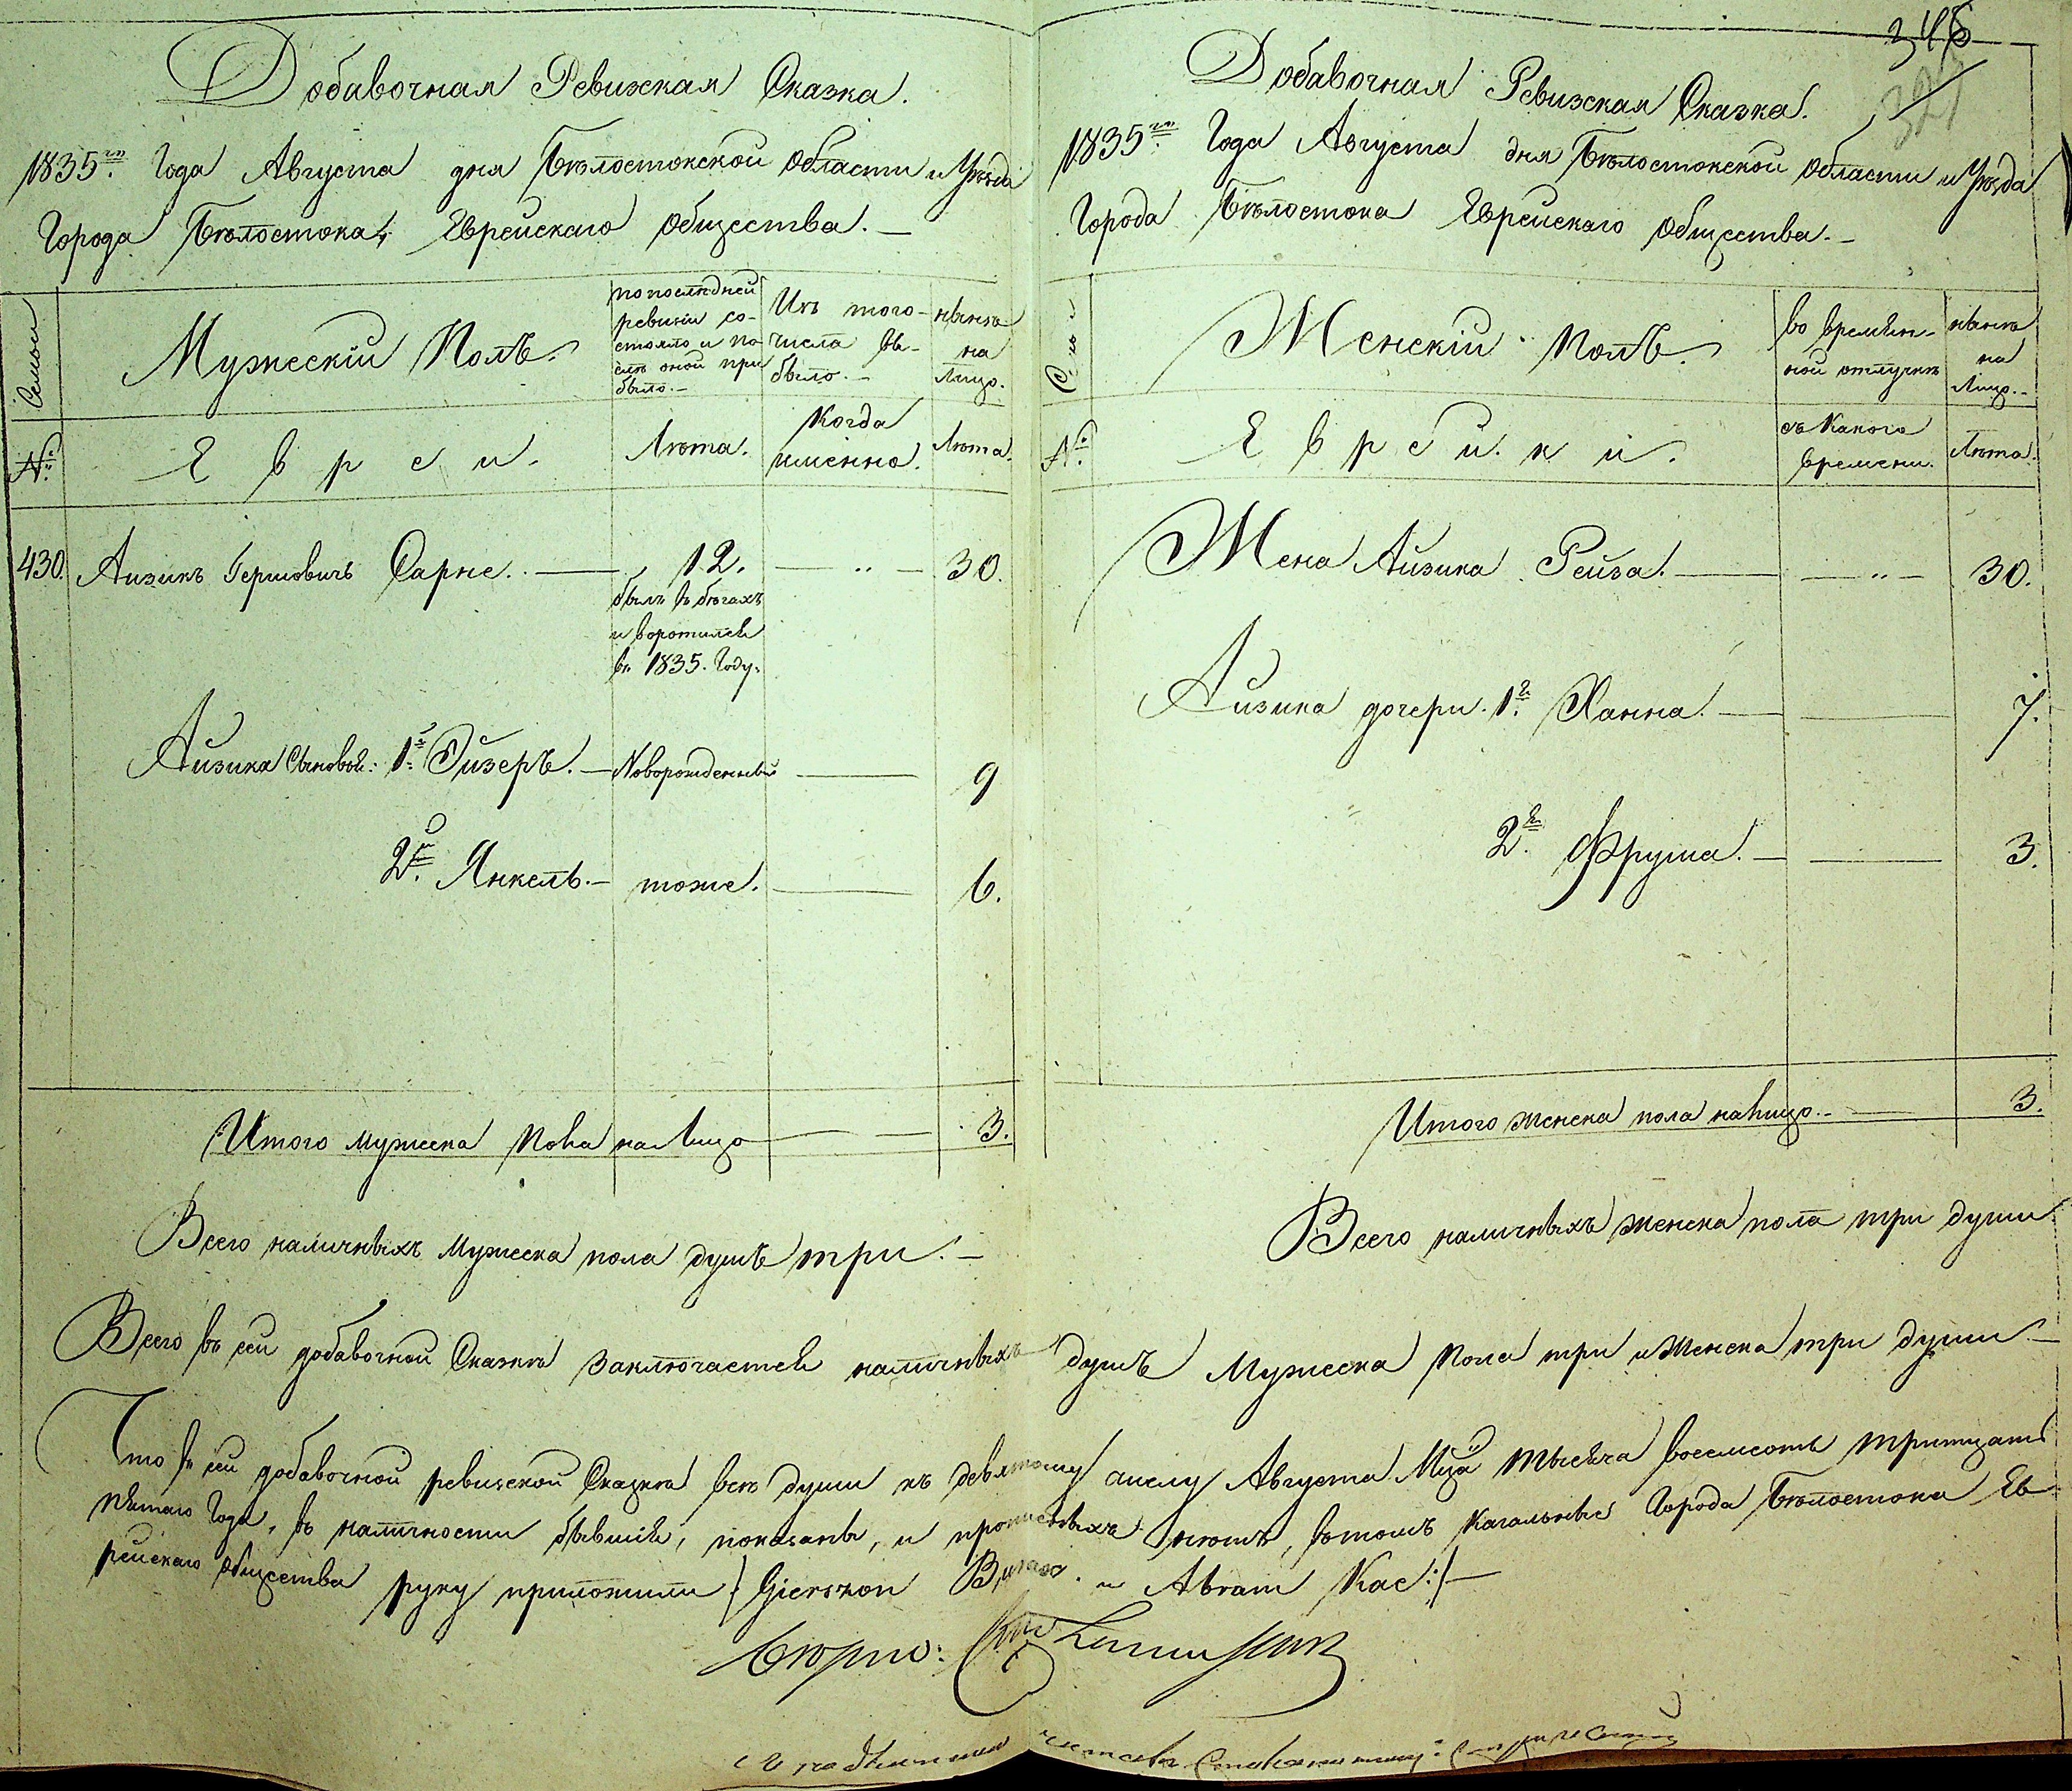 345
327
Добавочная Ревизская Сказка.
1835го Года Августа дня Бѣлостокской Области и Уѣзда
Города Бѣлостока, Еврейскаго Общества. —
Семьи
Мужескій Полъ.
по послѣдней
ревизіи со-
стояло и по-
слѣ оной при
было. —
Изъ того
числа вы-
было. —
нынѣ
на
Лицо.
№
Евреи.
Лѣта.
Когда
именно.
Лѣта.
430. Айзикъ Гершовичъ Сарне. — 12. — „ — 30.
былъ въ бѣгахъ
и воротился
въ 1835. Году.
Айзика Сыновья: 1й Эйзеръ. — Новорожденный — 9
2й Янкель. — тоже. — 6.
Итого мужеска Пола на Лицо — 3.
Всего наличныхъ Мужеска пола душъ три. —
Добавочная Ревизская Сказка.
1835го Года Августа дня Бѣлостокской Области и Уѣзда
Города Бѣлостока Еврейскаго Общества. —
Семьи
Женскій Полъ.
во времян-
ной отлучкѣ
нынѣ
на
Лицо. —
№
Еврейки.
съ Какого
времени.
Лѣта.
Жена Айзика Рейза. — „ — 30.
Айзика дочери. 1я Ханна. — 7.
2я Фрума. — 3.
Итого женска пола на лицо. — 3.
Всего наличныхъ женска пола три души
Всего въ сей добавочной Сказкѣ заключается наличныхъ душъ Мужеска Пола три и Женска три души —
Что въ сей добавочной ревизской Сказкѣ всѣ души къ девятому числу Августа Мца тысяча восемсотъ тритцать
пятаго Года, въ наличности бывшія, показаны, и прописныхъ нѣтъ, въ томъ Кагальные Города Бѣлостока Ев
рейскаго Общества руку приложили /: Gierszon и Abram Kac :/ —
Вѣрно: